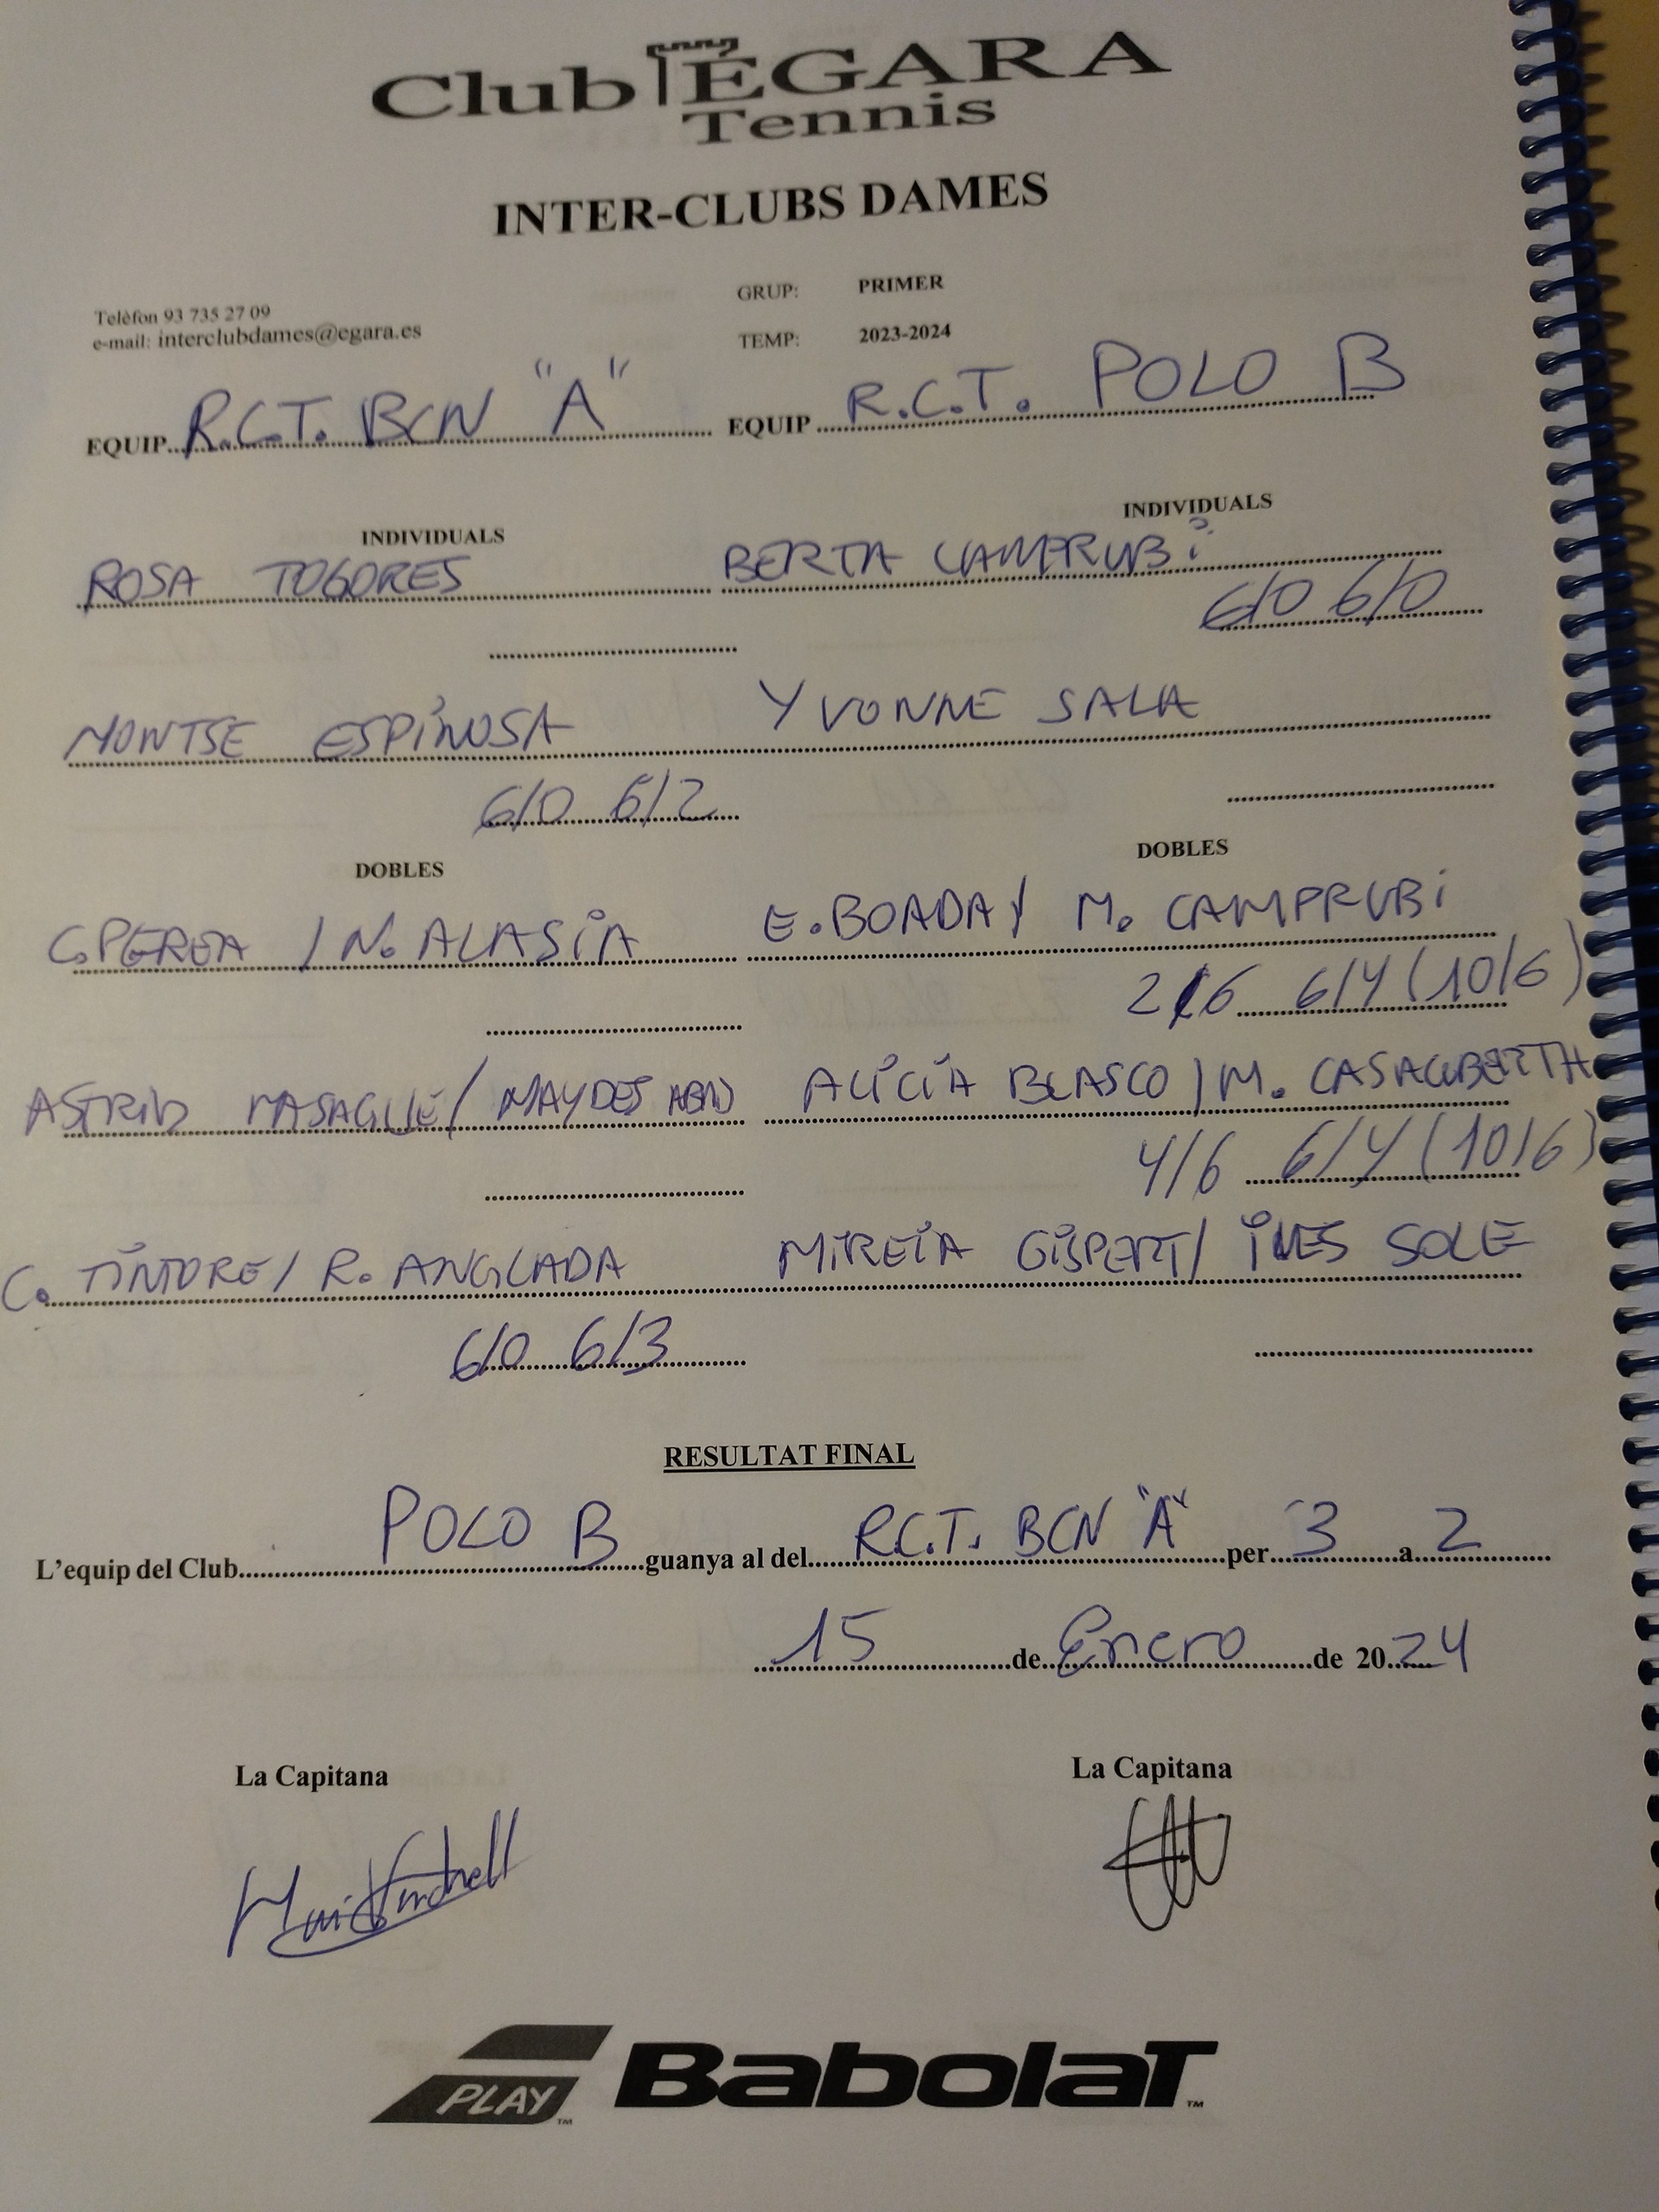 Club ÈGARA
Tennis
INTER-CLUBS DAMES
Telèfon 93 735 27 09
e-mail: interclubdames@egara.es
GRUP: PRIMER
TEMP: 2023-2024
EQUIP R.C.T. BCN "A" EQUIP R.C.T. POLO B
INDIVIDUALS INDIVIDUALS
ROSA TOGORES BERTA CAMPRUBi
6/0 6/0
MONTSE ESPiNOSA YVONNE SALA
6/0 6/2
DOBLES DOBLES
C.PEREA / N. ALASiA E. BOADA / M. CAMPRUBi
2/6 6/4 (10/6)
ASTRID MASAGUE / MAYDES ABAD ALiCiA BLASCO / M.
4/6 6/4 (10/6)
C. TiNTORE / R. ANGLADA MiREiA GiSPERT / iNES SOLE
6/0 6/3
RESULTAT FINAL
L'equip del Club POLO B guanya al del R.C.T. BCN "A" per 3 a 2
15 de Enero de 2024
La Capitana La Capitana
PLAY™ BabolaT™